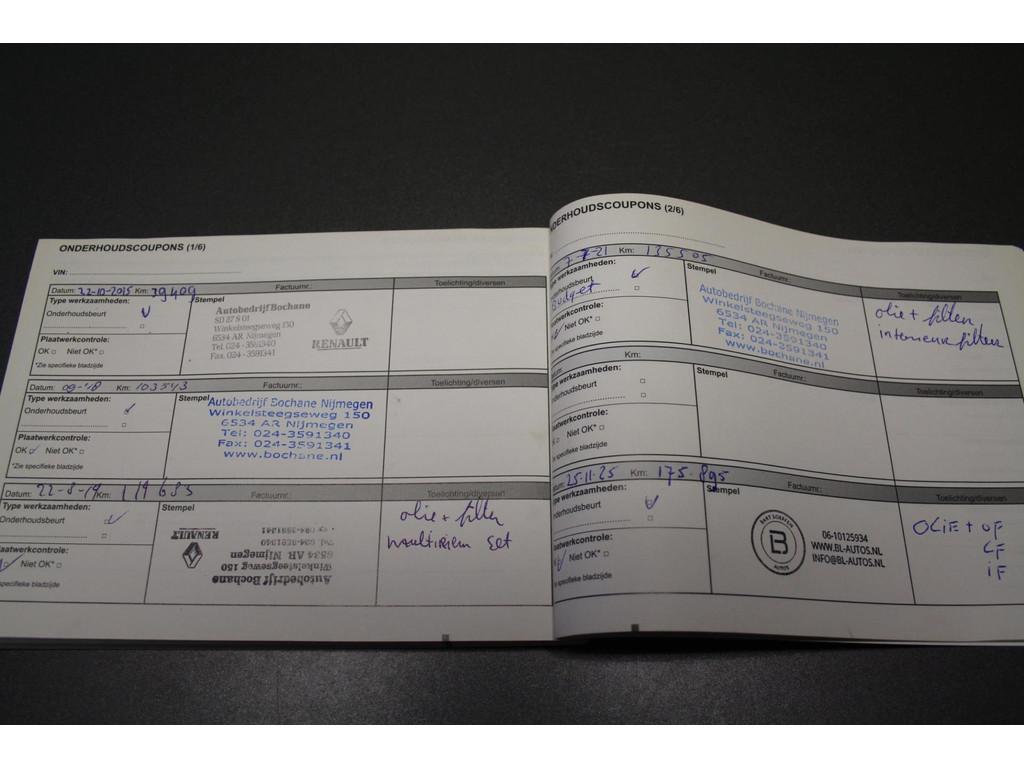 ONDERHOUDSCOUPONS (1/6)
VIN:
Datum: 22-10-2015 Km: 39409 Factuurnr.: Toelichting/diversen
Type werkzaamheden: Stempel
Onderhoudsbeurt
Plaatwerkcontrole:
OK Niet OK*
*Zie specifieke bladzijde
Autobedrijf Bochane
SD 27 S 01
Winkelsteegseweg 150
6534 AR Nijmegen
Tel. 024-3591340
Fax. 024-3591341
RENAULT
Datum: 09-'18 Km: 103543 Factuurnr.: Toelichting/diversen
Type werkzaamheden: Stempel
Onderhoudsbeurt
Plaatwerkcontrole:
OK Niet OK*
*Zie specifieke bladzijde
Autobedrijf Bochane Nijmegen
Winkelsteegseweg 150
6534 AR Nijmegen
Tel: 024-3591340
Fax: 024-3591341
www.bochane.nl
Datum: 22-8-19 Km: 119685 Factuurnr.: Toelichting/diversen
Type werkzaamheden: Stempel
Onderhoudsbeurt
laatwerkcontrole:
Niet OK*
e specifieke bladzijde
Autobedrijf Bochane
Winkelsteegseweg 150
6534 AR Nijmegen
Tel. 024-3591340
024-3591341
RENAULT
olie + filter
multiriem set
NDERHOUDSCOUPONS (2/6)
7-7-21 Km: 135505 Factuurnr.: Toelichting/diversen
pe werkzaamheden: Stempel
derhoudsbeurt
Budget
aatwerkcontrole:
Niet OK*
specifieke bladzijde
Autobedrijf Bochane Nijmegen
Winkelsteegseweg 150
6534 AR Nijmegen
Tel: 024-3591340
Fax: 024-3591341
www.bochane.nl
olie + filter
interieur filter
tum: Km: Factuurnr.: Toelichting/diversen
pe werkzaamheden: Stempel
derhoudsbeurt
aatwerkcontrole:
Niet OK*
e specifieke bladzijde
25-11-25 Km: 175-895 Factuurnr.: Toelichting/diversen
ype werkzaamheden: Stempel
nderhoudsbeurt
aatwerkcontrole:
Niet OK*
specifieke bladzijde
B
AUTOS
06-10125934
WWW.BL-AUTOS.NL
INFO@BL-AUTOS.NL
OLIE + OF
LF
iF